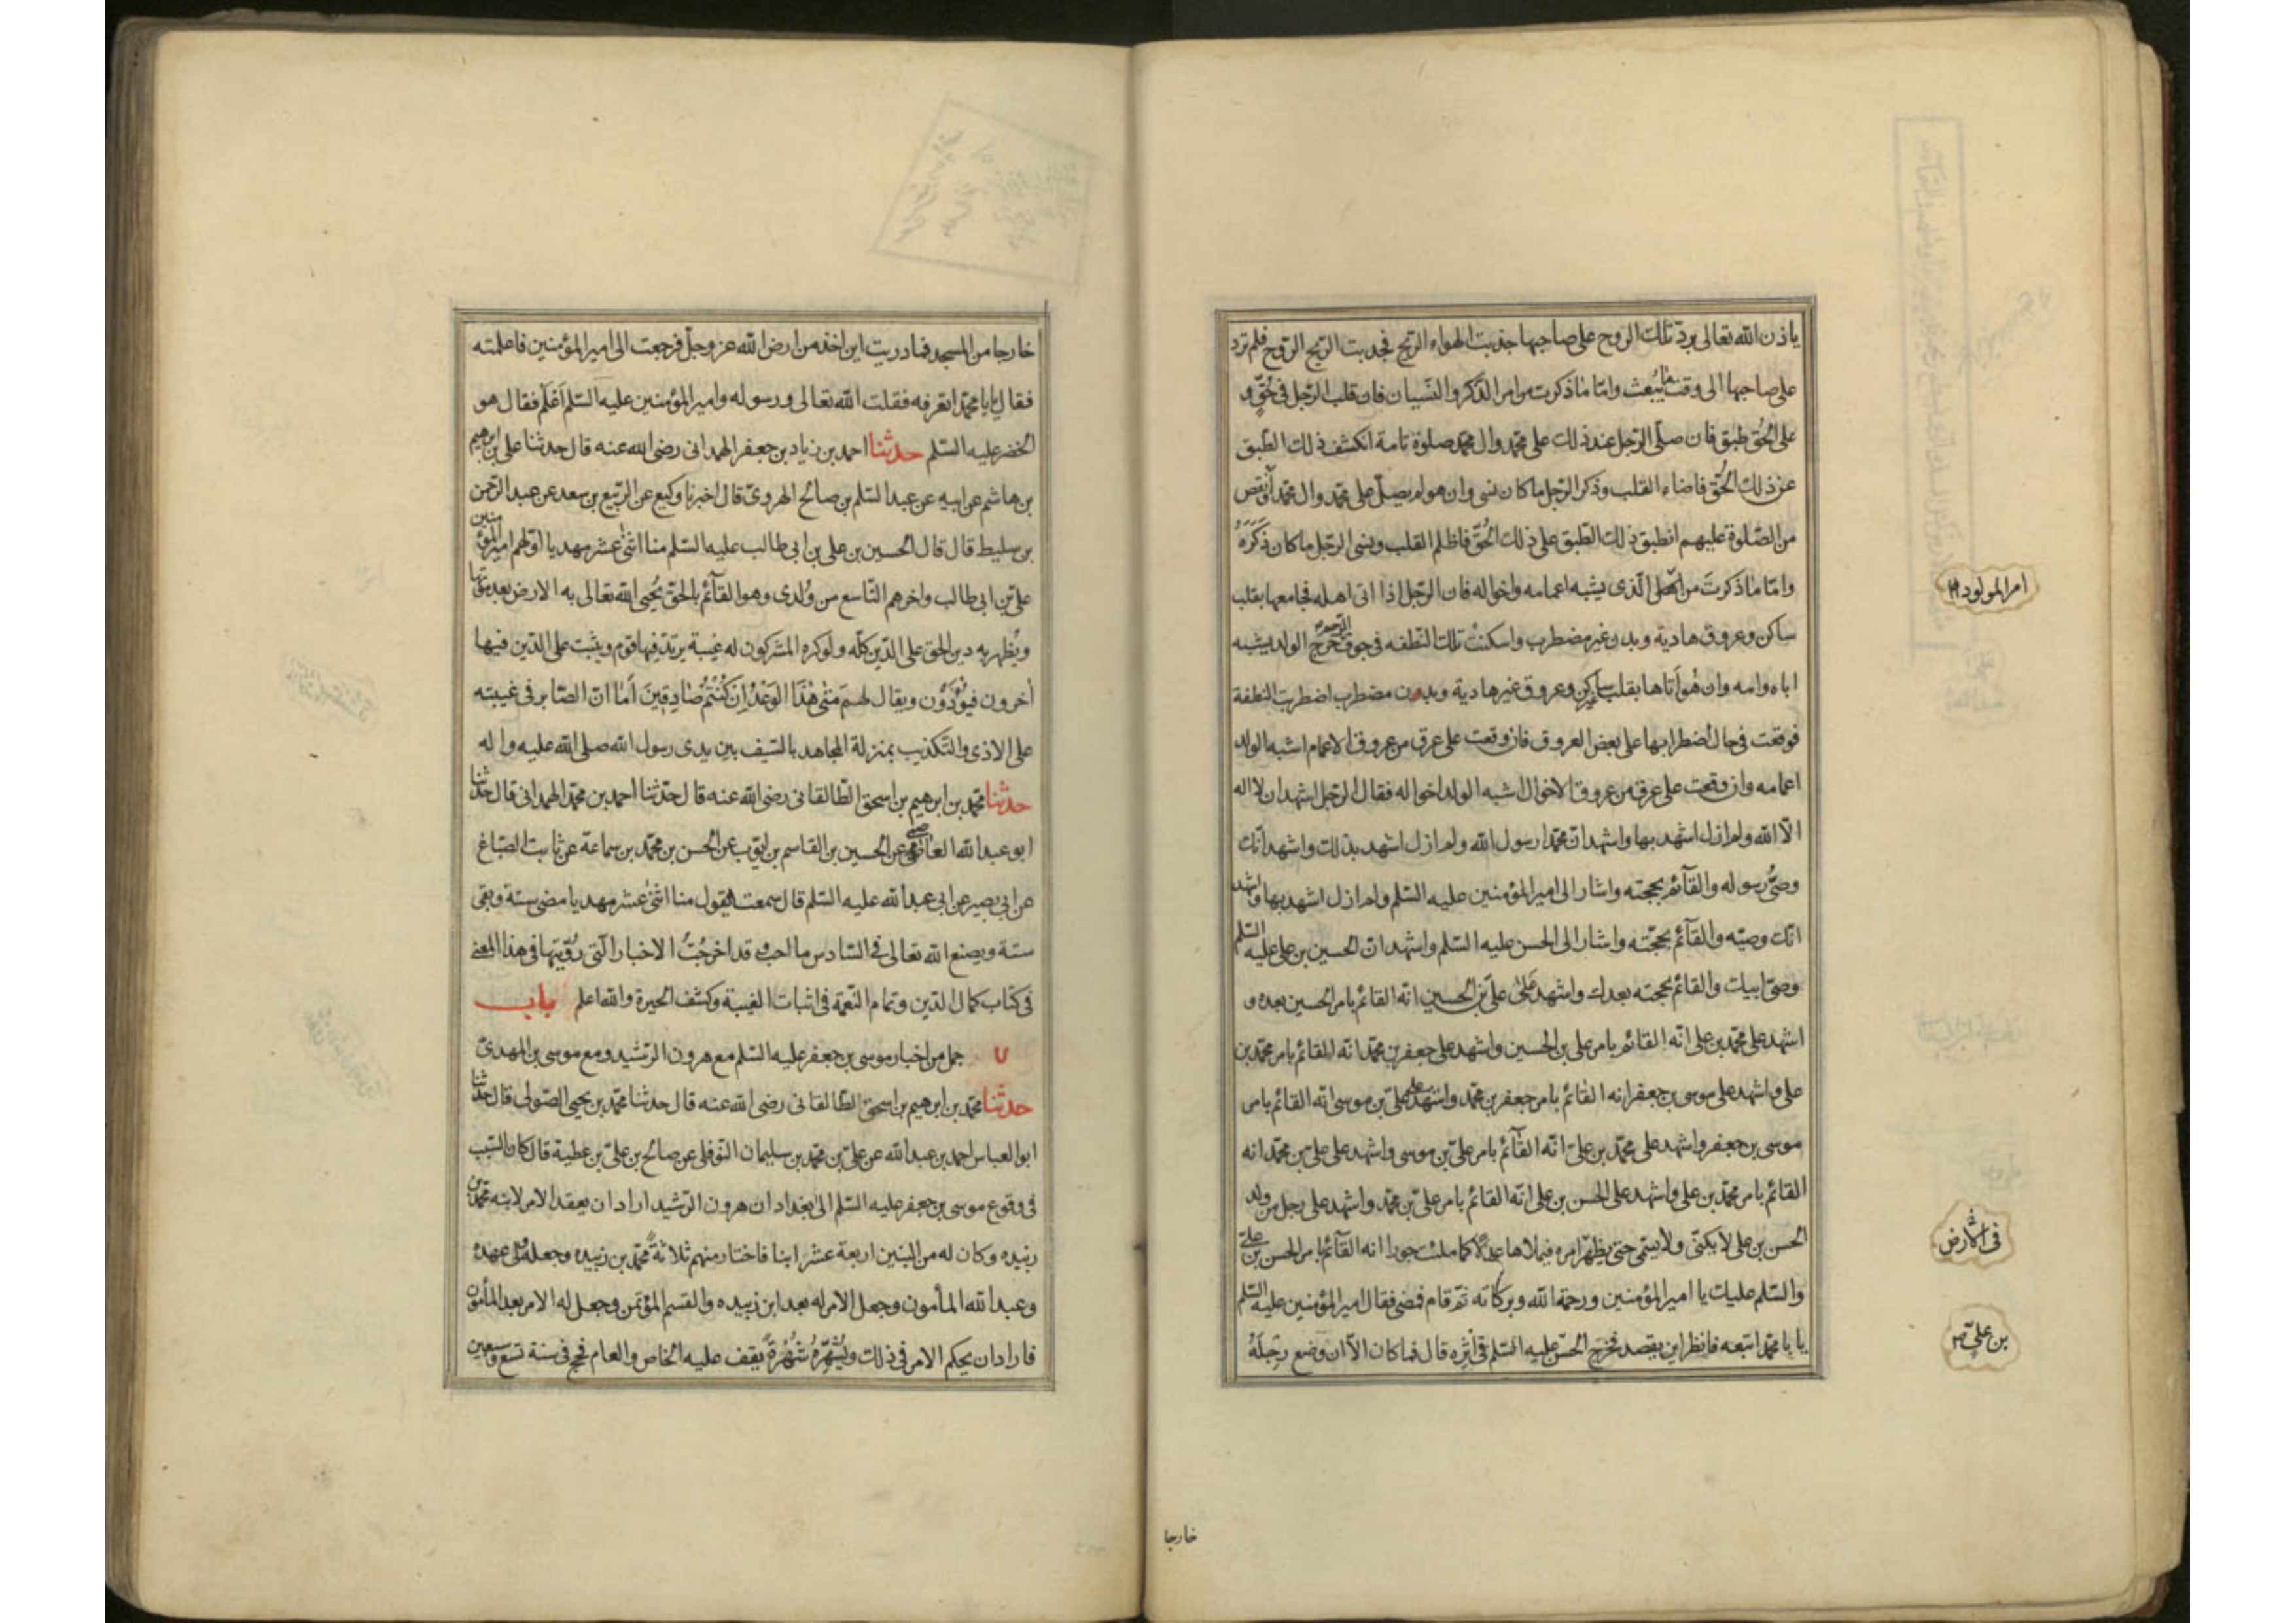 ياذن الله تعالى بردّ تلك الروح على صاحبها جذبت الهواء الريح فجذبت الريح الروح فلم ترد
على صاحبها الى وقت ما يبعث وامّا ما ذكرت من امر الذكر والنسيان فان قلب الرّجل فى حُقٍّ و
على الحُق طبق فان صلّى الرّجل عند ذلك على محمّد وال محمّد صلوة تامة انكشف ذلك الطّبق
عن ذلك الحُقّ فاضاء القلب وذكر الرّجل ما كان نسى وان هو لم يصلّ على محمّد وال محمّد او نقص
من الصّلوة عليهم انطبق ذلك الطّبق على ذلك الحُقّ فاظلم القلب ونسى الرّجل ما كان ذَكَرَهُ
وامّا ما ذكرتَ من الّذى يشبه اعمامه واخواله فان الرّجل اذا اتى اهله فجامعها بقلب
ساكن وعروق هادية وبدن غير مضطرب واسكنت تلك النّطفه فى جوف الرّحم خرج الولد يشبه
اباه وامه وان هو اتاها بقلب غير ساكن وعروق غير هادية وبدن مضطرب اضطربت النطفة
فوقعت فى حال اضطرابها على بعض العروق فان وقعت على عرق من عروق الاعمام اشبه الولد
اعمامه وان وقعت على عرق من عروق الاخوال اشبه الولد اخواله فقال الرّجل اشهد ان لا اله
الّا الله ولم ازل اشهد بها واشهد انّ محمّدا رسول الله ولم ازل اشهد بذلك واشهد انّك
وصىّ رسوله والقآئم بحجته واشار الى امير المؤمنين عليه السّلم ولم ازل اشهد بها واشهد
انّك وصيّه والقآئم بحجّته واشار الى الحسن عليه السّلم واشهد انّ الحسين بن على عليه السّلم
وصىّ ابيك والقائم بحجته بعدك واشهد على علىّ بن الحسين انّه القائم بامر الحسين بعده و
اشهد على محمّد بن على انّه القائم بامر على بن الحسين واشهد على جعفر بن محمّد انّه القائم بامر محمّد بن
على واشهد على موسى بن جعفر انه القائم بامر جعفر بن محمّد واشهد على علىّ بن موسى انّه القائم بامر
موسى بن جعفر واشهد على محمّد بن علىّ انّه القآئم بامر علىّ بن موسى واشهد على علىّ بن محمّد انه
القائم بامر محمّد بن على واشهد على الحسن بن على انّه القائم بامر علىّ بن محمّد واشهد على رجل من ولد
الحسن بن على لا يكنّى ولا يسمّى حتى يظهر امره فيملاها عدلا كما ملئت جورا انه القآئم بامر الحسن بن علىّ
والسّلم عليك يا امير المؤمنين ورحمة الله وبركاته ثمّ قام فمضى فقال امير المؤمنين عليه السّلم
يا با محمّد اتبعه فانظر اين يقصد فخرج الحسن عليه السّلم فى اثره قال فما كان الّا ان وضع رجلَهُ
امر المولود
فى
بن علىّ
خارجا
خارجا من المسجد فما دريت اين اخذ من ارض الله عز وجلّ فرجعت الى امير المؤمنين فاعلمته
فقال يا با محمّد اتعرفه فقلت الله تعالى ورسوله وامير المؤمنين عليه السّلم اعلم فقال هو
الخضر عليه السّلم حدثنا احمد بن زياد بن جعفر الهمدانى رضى الله عنه قال حدثنا على بن ابرهيم
بن هاشم عن ابيه عن عبد السّلم بن صالح الهروىّ قال اخبرنا وكيع عن الرّبيع بن سعد عن عبد الرّحمن
بن سليط قال قال الحسين بن على بن ابى طالب عليه السّلم منا اثنى عشر مهديا اوّلهم امير المؤمنين
علىّ بن ابى طالب واخرهم التّاسع من وُلدى وهو القآئم بالحقّ يُحيى الله تعالى به الارض بعد موتها
ويُظهر به دين الحق على الدّين كلّه ولو كره المشركون له غيبة يرتدّ فيها قوم ويثبت على الدّين فيها
اخرون فيؤذَون ويقال لهم مَتى هٰذَا الوَعْدُ اِن كُنتُمْ صَادِقِينَ اَمَا انّ الصّابر فى غيبته
على الاذى والتّكذيب بمنزلة المجاهد بالسّيف بين يدى رسول الله صلى الله عليه واله
حدثنا محمّد بن ابرهيم بن اسحق الطّالقانى رضى الله عنه قال حدّثنا احمد بن محمّد الهمدانى قال حدّثنا
ابو عبد الله العاصمى عن الحسين بن القاسم بن ايّوب عن الحسن بن محمّد بن سماعة عن ثابت الصّباغ
عن ابى بصير عن ابى عبد الله عليه السّلم قال سمعته يقول منا اثنى عشر مهديا مضى ستة وبقى
ستة ويصنع الله تعالى فى السّادس ما احبّ وقد اخرجتُ الاخبار الّتى رُوّيتها فى هذا المعنى
فى كتاب كمال الدّين وتمام النّعمة فى اثبات الغيبة وكشف الحيرة والله اعلم باب
٧ جمل من اخبار موسى بن جعفر عليه السّلم مع هرون الرّشيد ومع موسى بن المهدىّ
حدثنا محمّد بن ابرهيم بن اسحق الطّالقانى رضى الله عنه قال حدثنا محمّد بن يحيى الصّولى قال حدّثنا
ابو العباس احمد بن عبد الله عن علىّ بن محمّد بن سليمان النّوفلى عن صالح بن علىّ بن عطية قال كان السّبب
فى وقوع موسى بن جعفر عليه السّلم الى بغداد ان هرون الرّشيد اراد ان يعقد الامر لابنه محمّد بن
زبيده وكان له من البنين اربعة عشر ابنا فاختار منهم ثلاثةً محمّد بن زبيده وجعله ولى عهده
وعبد الله المأمون وجعل الامر له بعد ابن زبيده والقسم المؤتمن وجعل له الامر بعد المأمون
فاراد ان يحكم الامر فى ذلك ويُشَهِّرهُ شُهْرةً يقف عليه الخاص والعام فحج فى سنة تسع وسبعين